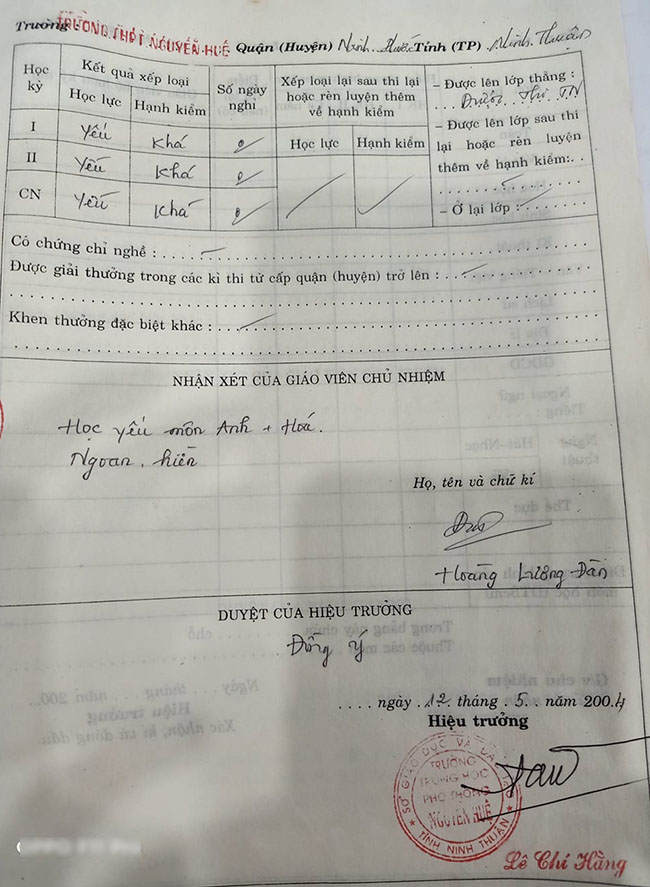 Trường TRƯỜNG THPT NGUYỄN HUỆ Quận (Huyện) Ninh Phước Tỉnh (TP) Ninh Thuận
Học kỳ
Kết quả xếp loại
Học lực Hạnh kiểm
Số ngày nghỉ
Xếp loại lại sau thi lại hoặc rèn luyện thêm về hạnh kiểm
Học lực Hạnh kiểm
– Được lên lớp thẳng :
Được Thi TN
– Được lên lớp sau thi
lại hoặc rèn luyện
thêm về hạnh kiểm:
– Ở lại lớp :
I Yếu Khá 0
II Yếu Khá 0
CN Yếu Khá 0
Có chứng chỉ nghề :
Được giải thưởng trong các kì thi từ cấp quận (huyện) trở lên :
Khen thưởng đặc biệt khác :
NHẬN XÉT CỦA GIÁO VIÊN CHỦ NHIỆM
Học yếu môn Anh + Hoá.
Ngoan, hiền
Họ, tên và chữ kí
Hoàng Lương Đàn
DUYỆT CỦA HIỆU TRƯỞNG
Đồng ý
ngày 12 tháng 5 năm 2004
Hiệu trưởng
SỞ GIÁO DỤC VÀ ĐÀO TẠO
TRƯỜNG
TRUNG HỌC
PHỔ THÔNG
NGUYỄN HUỆ
TỈNH NINH THUẬN
Lê Chí Hằng